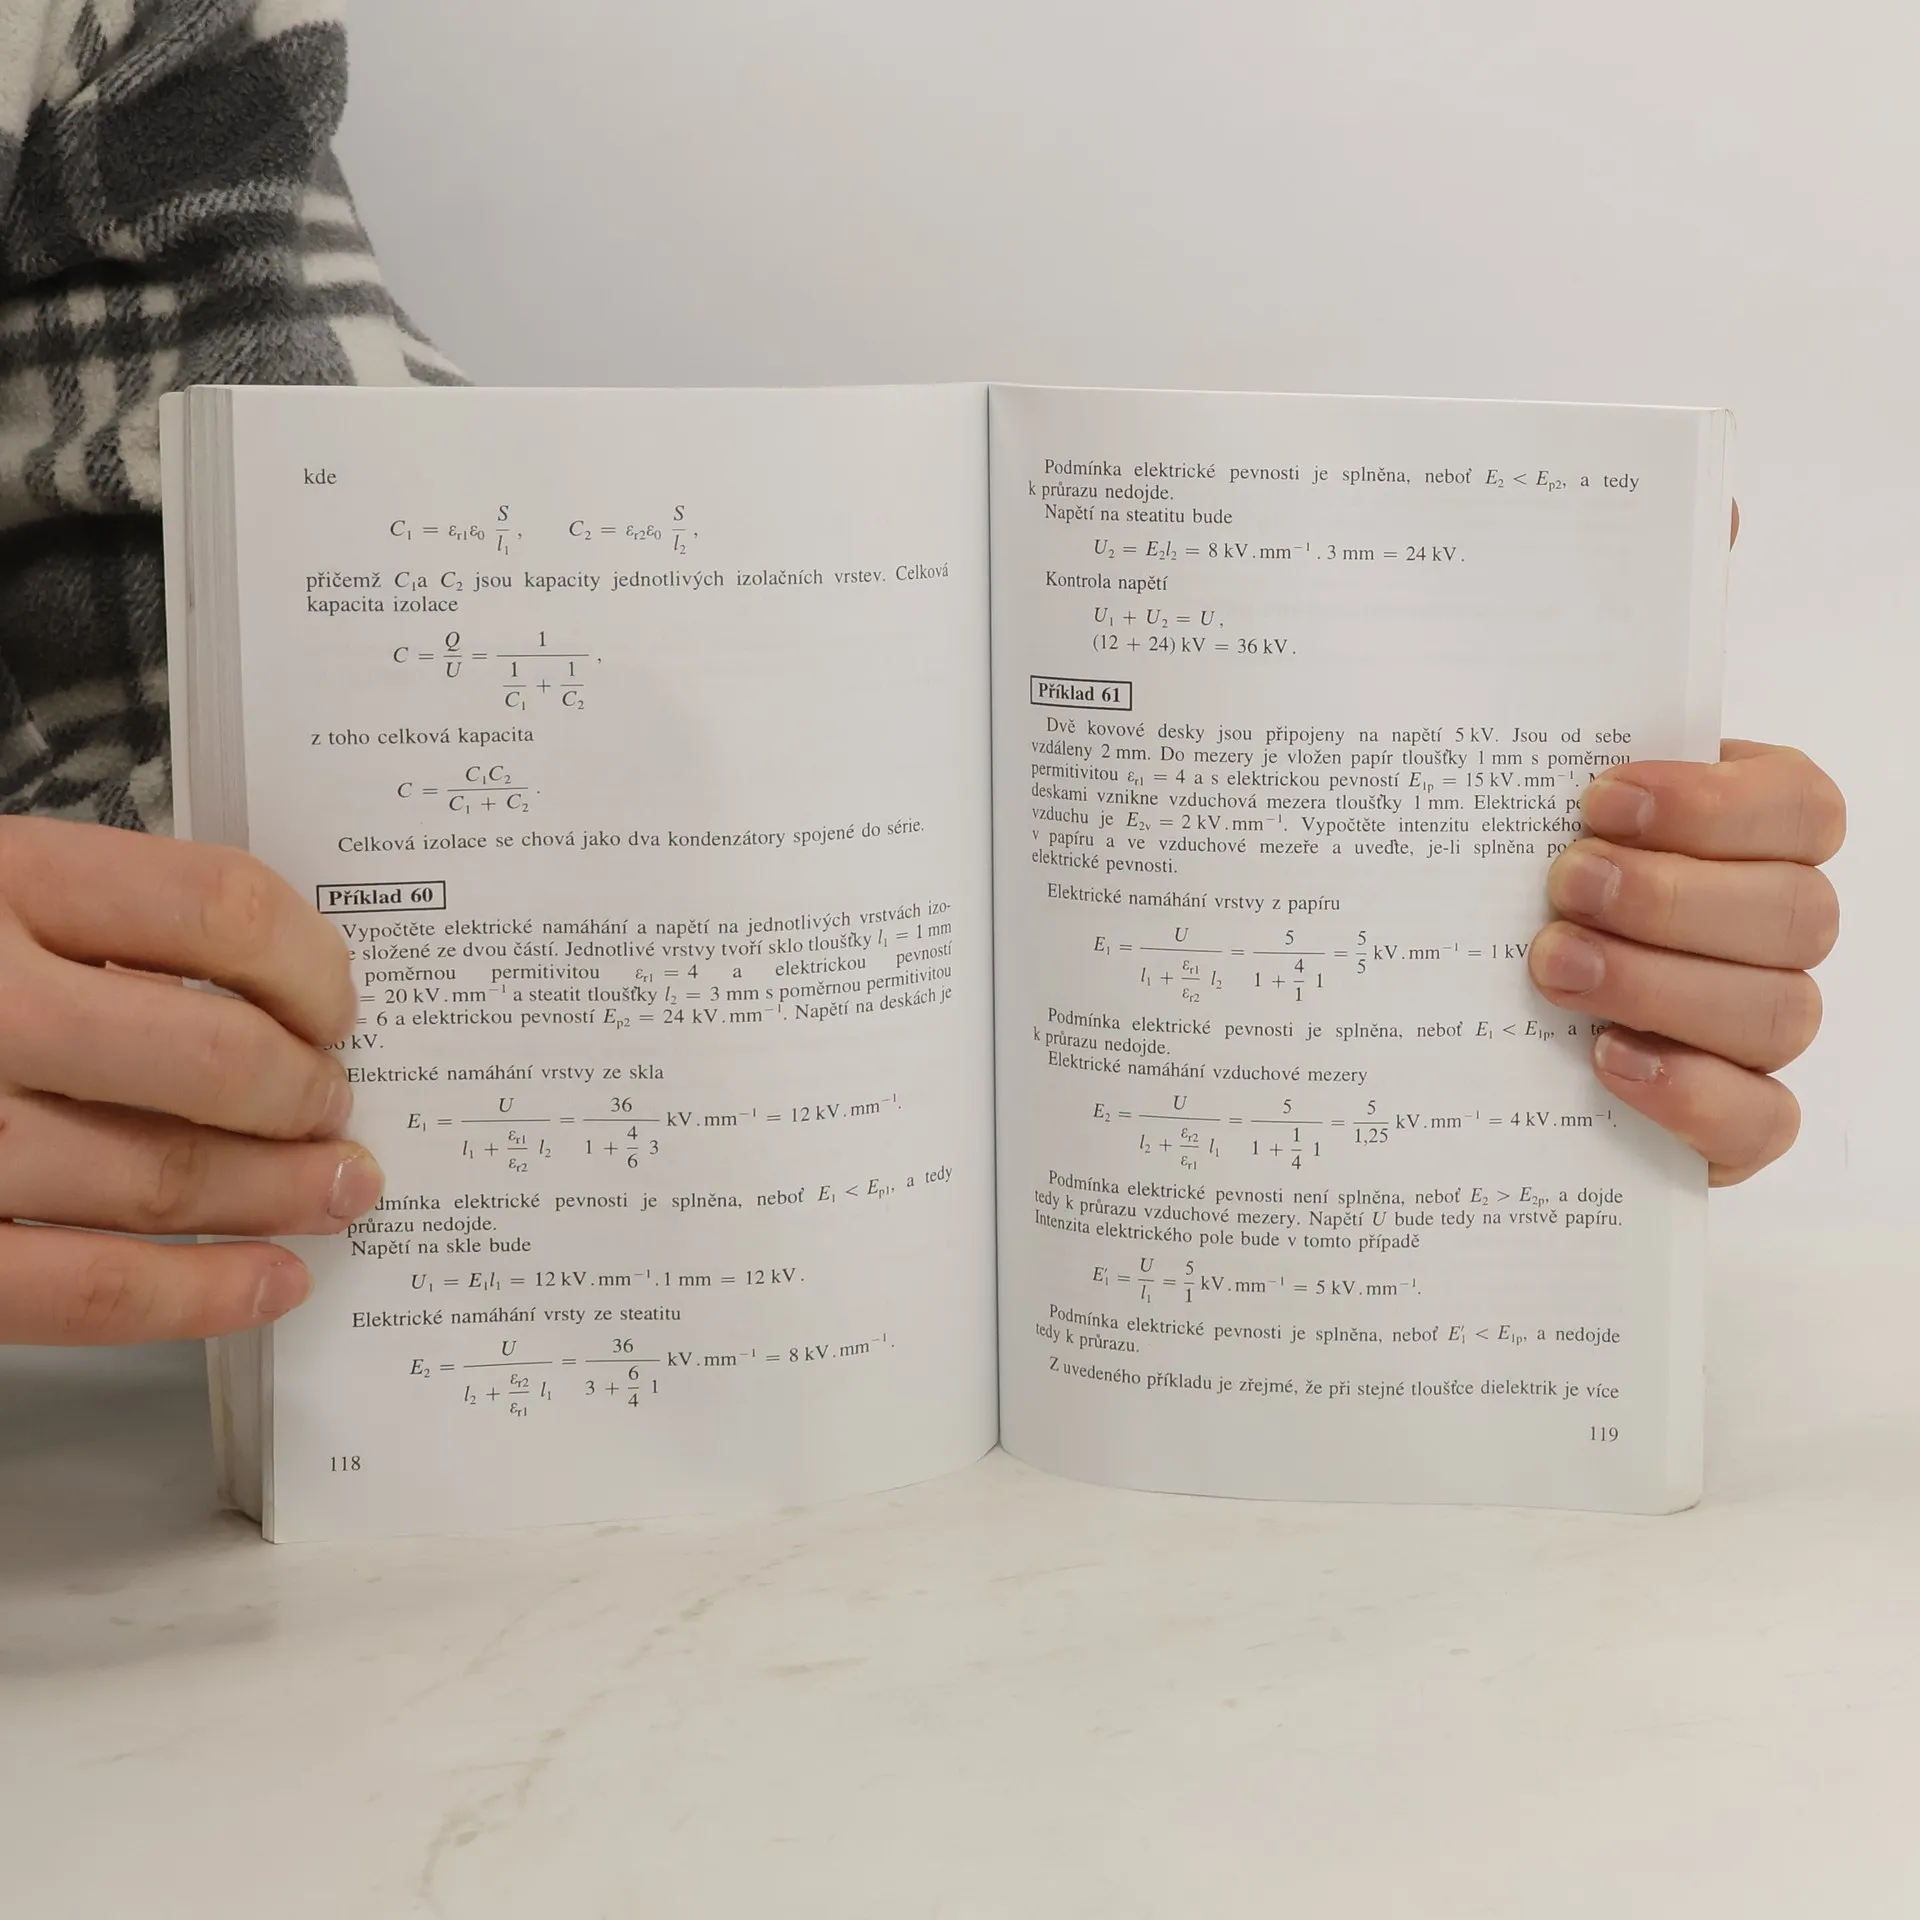 kde
C₁ = εr1ε0 S/l₁ , C₂ = εr2ε0 S/l₂ ,
přičemž C₁a C₂ jsou kapacity jednotlivých izolačních vrstev. Celková
kapacita izolace
C = Q/U = 1/(1/C₁ + 1/C₂) ,
z toho celková kapacita
C = C₁C₂/(C₁ + C₂) .
Celková izolace se chová jako dva kondenzátory spojené do série.
Příklad 60
Vypočtěte elektrické namáhání a napětí na jednotlivých vrstvách izo-
složené ze dvou částí. Jednotlivé vrstvy tvoří sklo tloušťky l₁ = 1 mm
poměrnou permitivitou εr1 = 4 a elektrickou pevností
= 20 kV.mm⁻¹ a steatit tloušťky l₂ = 3 mm s poměrnou permitivitou
= 6 a elektrickou pevností Ep2 = 24 kV.mm⁻¹. Napětí na deskách je
kV.
Elektrické namáhání vrstvy ze skla
E₁ = U/(l₁ + εr1/εr2 l₂) = 36/(1 + 4/6 3) kV.mm⁻¹ = 12 kV.mm⁻¹.
elektrické pevnosti je splněna, neboť E₁ < Ep1, a tedy
průrazu nedojde.
Napětí na skle bude
U₁ = E₁l₁ = 12 kV.mm⁻¹.1 mm = 12 kV.
Elektrické namáhání vrsty ze steatitu
E₂ = U/(l₂ + εr2/εr1 l₁) = 36/(3 + 6/4 1) kV.mm⁻¹ = 8 kV.mm⁻¹.
118
Podmínka elektrické pevnosti je splněna, neboť E₂ < Ep2, a tedy
k průrazu nedojde.
Napětí na steatitu bude
U₂ = E₂l₂ = 8 kV.mm⁻¹. 3 mm = 24 kV.
Kontrola napětí
U₁ + U₂ = U,
(12 + 24) kV = 36 kV.
Příklad 61
Dvě kovové desky jsou připojeny na napětí 5 kV. Jsou od sebe
vzdáleny 2 mm. Do mezery je vložen papír tloušťky 1 mm s poměrnou
permitivitou εr1 = 4 a s elektrickou pevností E1p = 15 kV.mm⁻¹.
deskami vznikne vzduchová mezera tloušťky 1 mm. Elektrická
vzduchu je E2v = 2 kV.mm⁻¹. Vypočtěte intenzitu elektrického
v papíru a ve vzduchové mezeře a uveďte, je-li splněna
elektrické pevnosti.
Elektrické namáhání vrstvy z papíru
E₁ = U/(l₁ + εr1/εr2 l₂) = 5/(1 + 4/1 1) = 5/5 kV.mm⁻¹ = 1 kV
Podmínka elektrické pevnosti je splněna, neboť E₁ < E1p, a
k průrazu nedojde.
Elektrické namáhání vzduchové mezery
E₂ = U/(l₂ + εr2/εr1 l₁) = 5/(1 + 1/4 1) = 5/1,25 kV.mm⁻¹ = 4 kV.mm⁻¹.
Podmínka elektrické pevnosti není splněna, neboť E₂ > E2p, a dojde
tedy k průrazu vzduchové mezery. Napětí U bude tedy na vrstvě papíru.
Intenzita elektrického pole bude v tomto případě
E₁′ = U/l₁ = 5/1 kV.mm⁻¹ = 5 kV.mm⁻¹.
Podmínka elektrické pevnosti je splněna, neboť E₁′ < E1p, a nedojde
tedy k průrazu.
Z uvedeného příkladu je zřejmé, že při stejné tloušťce dielektrik je více
119